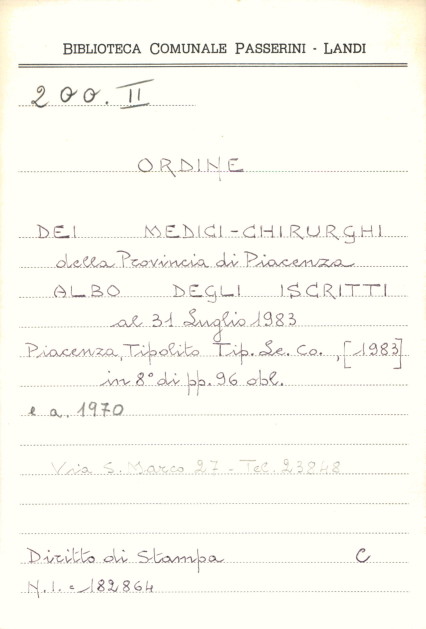 BIBLIOTECA COMUNALE PASSERINI - LANDI
200. II
ORDINE
DEI MEDICI-CHIRURGHI
della Provincia di Piacenza
ALBO DEGLI ISCRITTI
al 31 Luglio 1983
Piacenza, Tipolito Tip. Le. Co., [1983]
in 8° di pp. 96 obl.
e a. 1970
Via S. Marco 27 - Tel. 23848
Diritto di Stampa C
N.I. = 182864